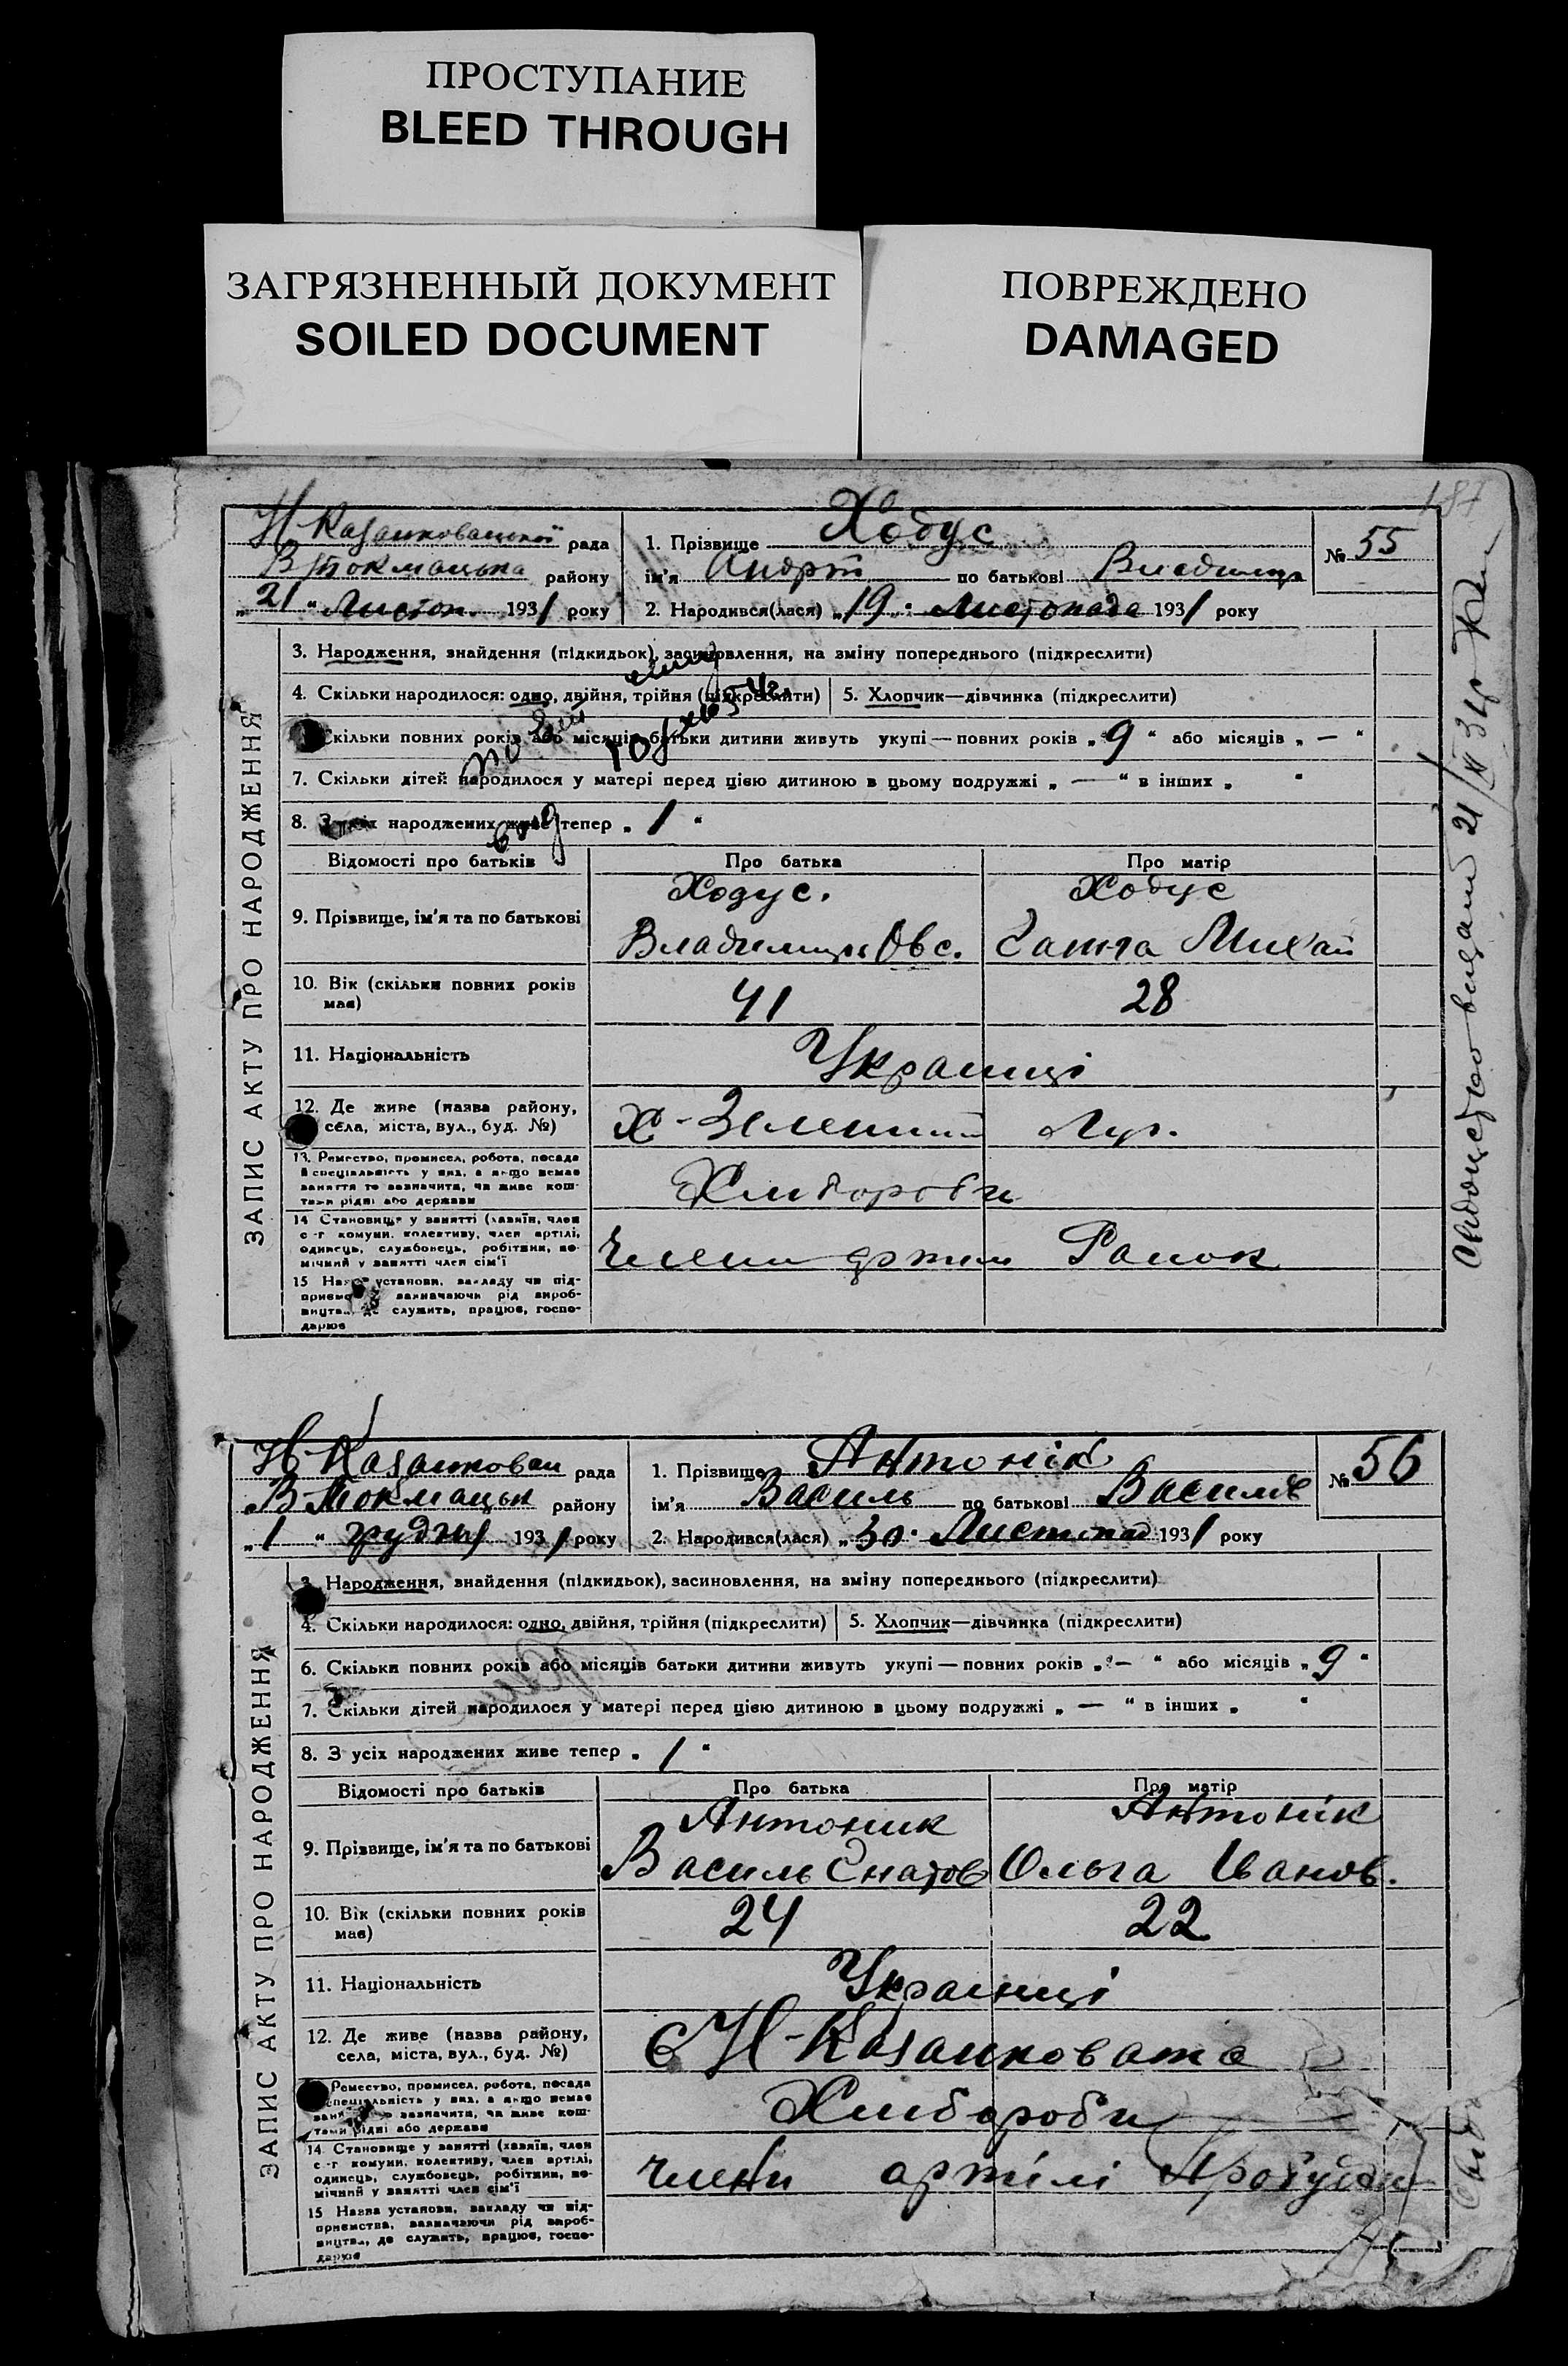 ПРОСТУПАНИЕ
BLEED THROUGH
ЗАГРЯЗНЕННЫЙ ДОКУМЕНТ
SOILED DOCUMENT
ПОВРЕЖДЕНО
DAMAGED
187
ЗАПИС АКТУ ПРО НАРОДЖЕННЯ
Н Казанковацької рада
В Токмацька району
„21“ Листоп. 1931 року
1. Прізвище Ходус
ім'я Андрій по батькові Владимир
2. Народився(лася) „19“ Листопада 1931 року
№ 55
3. Народження, знайдення (підкидьок), засиновлення, на зміну попереднього (підкреслити)
4. Скільки народилося: одно, двійня, трійня (підкреслити)
5. Хлопчик—дівчинка (підкреслити)
Скільки повних років або місяців батьки дитини живуть укупі—повних років „9“ або місяців „—“
7. Скільки дітей народилося у матері перед цією дитиною в цьому подружжі „—“ в інших „ “
8. З усіх народжених живе тепер „1“
Відомості про батьків
Про батька
Про матір
9. Прізвище, ім'я та по батькові
Ходус.
Владимир Овс.
Ходус
Михай
10. Вік (скільки повних років має)
41
28
11. Національність
Украинці
12. Де живе (назва району, села, міста, вул., буд. №)
Х-Зелений Луг.
13. Ремество, промисел, робота, посада й спеціальність у них, а якщо немає заняття то зазначити, чи живе коштами рідні або держави
Хлибороби
14 Становище у занятті (хазяїн, член с-г комуни, колективу, член артілі, одинець, службовець, робітник, помічний у занятті член сім'ї
Члени артили Ранок
15 Назва установи, закладу чи підприємства, зазначаючи рід виробництва, де служить, працює, господарює
21/XI 31р
ЗАПИС АКТУ ПРО НАРОДЖЕННЯ
Н-Казанковац рада
В Токмацьк району
„1“ грудня 1931 року
1. Прізвище Антонік
ім'я Василь по батькові Василів
2. Народився(лася) „30“ Листопад 1931 року
№ 56
3. Народження, знайдення (підкидьок), засиновлення, на зміну попереднього (підкреслити)
4. Скільки народилося: одно, двійня, трійня (підкреслити)
5. Хлопчик—дівчинка (підкреслити)
6. Скільки повних років або місяців батьки дитини живуть укупі—повних років „—“ або місяців „9“
7. Скільки дітей народилося у матері перед цією дитиною в цьому подружжі „—“ в інших „ “
8. З усіх народжених живе тепер „1“
Відомості про батьків
Про батька
Про матір
9. Прізвище, ім'я та по батькові
Антоник
Василь
Антонік
Ольга Іванов.
10. Вік (скільки повних років має)
24
22
11. Національність
Украинці
12. Де живе (назва району, села, міста, вул., буд. №)
с Н-Казанковата
Ремество, промисел, робота, посада спеціальність у них, а якщо немає зазначити, чи живе коштами рідні або держави
Хлибороби
14. Становище у занятті (хазяїн, член с-г комуни, колективу, член артілі, одинець, службовець, робітник, помічний у занятті член сім'ї
члени артілі
15 Назва установи, закладу чи підприємства, зазначаючи рід виробництва, де служить, працює, господарює